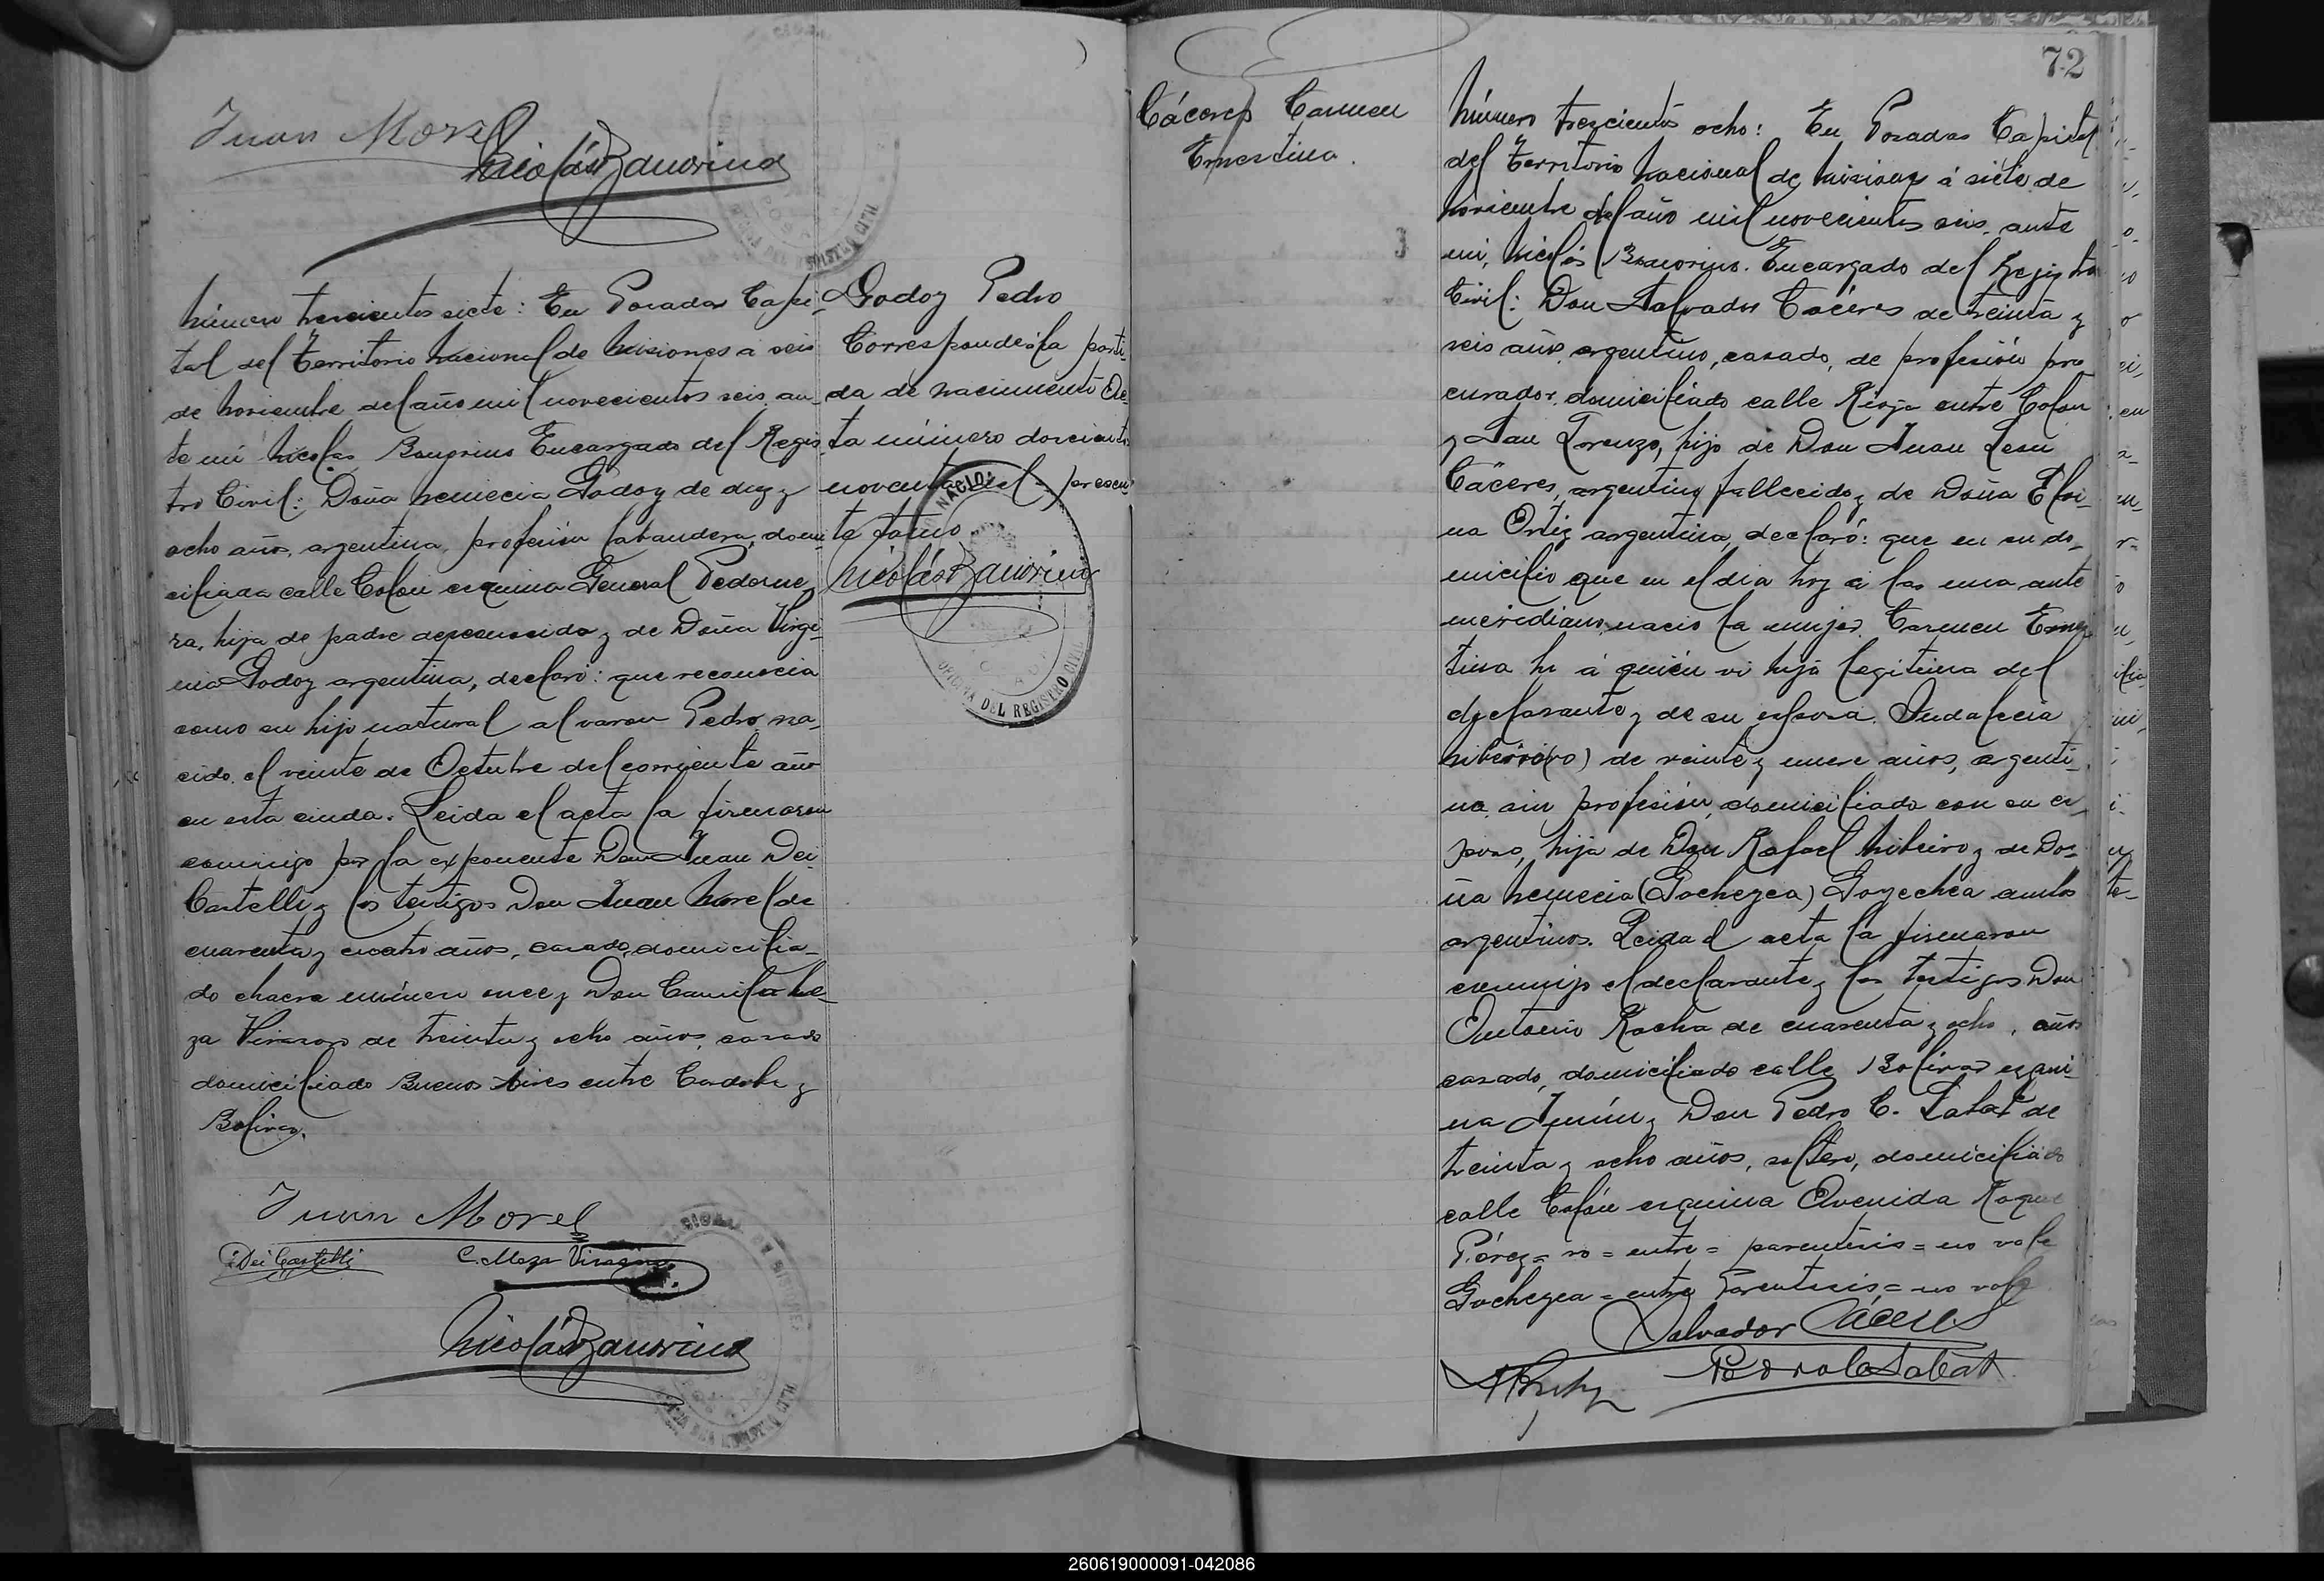 Juan Morel
Nicolás Zamorino
Número trescientos siete: En Posadas Capi-
tal del Territorio Nacional de Misiones á seis
de Noviembre del año mil novecientos seis, an-
te mi Nicolas Encargado del Regis
tro Civil: Doña Nemecia Godoy de diez y
ocho años, argentina, profesión labandera, domi
ciliada calle Colon esquina General Pedorne
ra, hija de padre desconocido y de Doña Virgi-
nia Godoy argentina, declaró: que reconocia
como su hijo natural al varon Pedro, na-
cido el veinte de Octubre del corriente año
en esta ciuda. Leida el acta la firmaron
conmigo por la exponente Don Juan Dei
Castelli y los testigos Don Juan Morel de
cuarenta y cuatro años, casado, domicilia-
do chacra número once y Don Camilo Me-
za Virasoro de treinta y ocho años, casado
domiciliado Buenos Aires entre Cordoba y
Bolivar.
Juan Morel
Dei Castelli C. Meza Virasoro
Nicolás Zamorino
Godoy Pedro
Corresponde á la parti-
da de nacimiento Ac-
ta número doscientos
noventa del presen-
te tomo
Nicolás Zamorino
OFICINA DEL REGISTRO CIVIL
72
Cáceres Carmen
Ernestina.
Número trescientos ocho: En Posadas Capital
del Territorio Nacional de Misiones á siete de
Noviembre del año mil novecientos seis, ante
mi, Nicolás Encargado del Registro
Civil: Don Salvador Cáceres de treinta y
seis años, argentino, casado, de profesión pro
curador, domiciliado calle Rioja entre Colon
y San Lorenzo, hijo de Don Juan Leon
Cáceres, argentino fallecido y de Doña Eloi-
na Ortiz argentina, declaró: que en su do-
micilio que en el dia hoy á las una ante
meridiano, nacio la mujer Carmen Ernes
tina á quién vi hija legitima del
declarante y de su esposa Indalecia
Ribeiro(ro) de veinte y nueve años, argenti-
na, sin profesión, domiciliada con su es
poso, hija de Don Rafael Ribeiro y de Do-
ña Nemecia (Gochegea) Goyechea ambos
argentinos. Leida el acta la firmaron
conmigo el declarante y los testigos Don
Antonio Rocha de cuarenta y ocho, años
casado, domiciliado calle Bolivar esqui-
na Junín y Don Pedro C. Labat de
treinta y ocho años, soltero, domiciliado
calle Colón esquina Avenida Roque
Pérez = ro = entre = parentésis = no vale
Gochegea = entre Parentesis = no vale
Salvador Cáceres
Pedro C. Labat
260619000091-042086